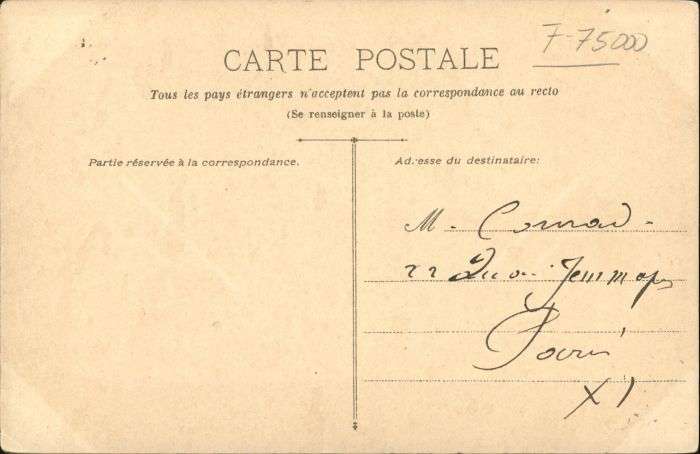 F-75000
CARTE POSTALE
Tous les pays étrangers n'acceptent pas la correspondance au recto
(Se renseigner à la poste)
Partie réservée à la correspondance.
Adresse du destinataire:
M. Conrad
22 Quai Jemmapes
Paris
XI